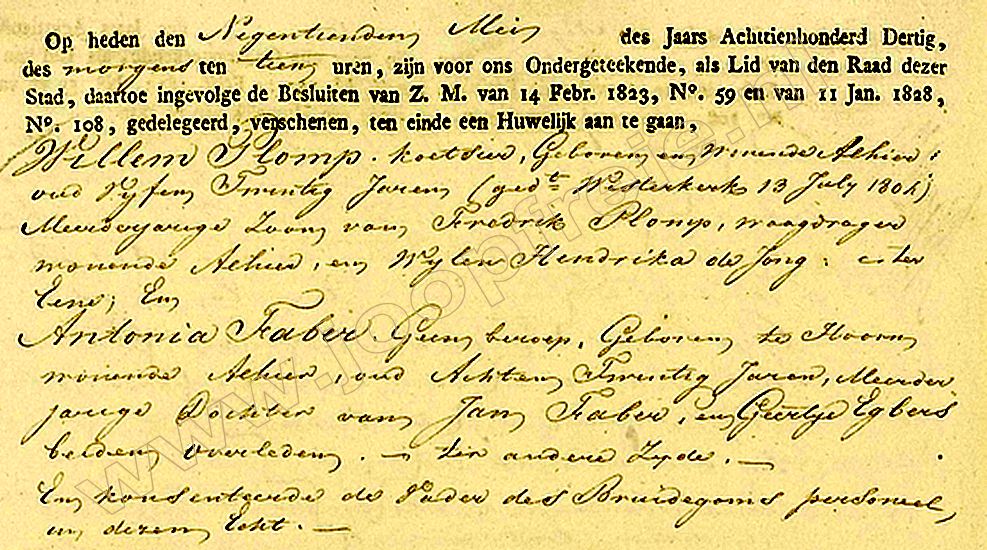 Op heden den Negentienden Mei des Jaars Achttienhonderd Dertig,
des morgens ten tien uren, zijn voor ons Ondergeteekende, als Lid van den Raad dezer
Stad, daartoe ingevolge de Besluiten van Z. M. van 14 Febr. 1823, No. 59 en van 11 Jan. 1828,
No. 108, gedelegeerd, verschenen, ten einde een Huwelijk aan te gaan,
Willem Plomp. koetsier, Geboren en wonende Alhier;
oud Vyf en Twintig Jaren (gedt Westerkerk 13 July 1804)
Meerderjarige Zoon van Fredrik Plomp, waagdrager
wonende Alhier, en Wylen Hendrika de Jong; ter
Eene; En
Antonia Faber. Geen beroep, Geboren te Hoorn
wonende Alhier, oud Acht en Twintig Jaren, Meerder
jarige Dochter van Jan Faber, en Geertje Egbers
beiden overleden. — ter andere Zyde. —
En konsenteerde de Vader des Bruidegoms personeel,
in dezen Echt. —
www.joopfreije.nl